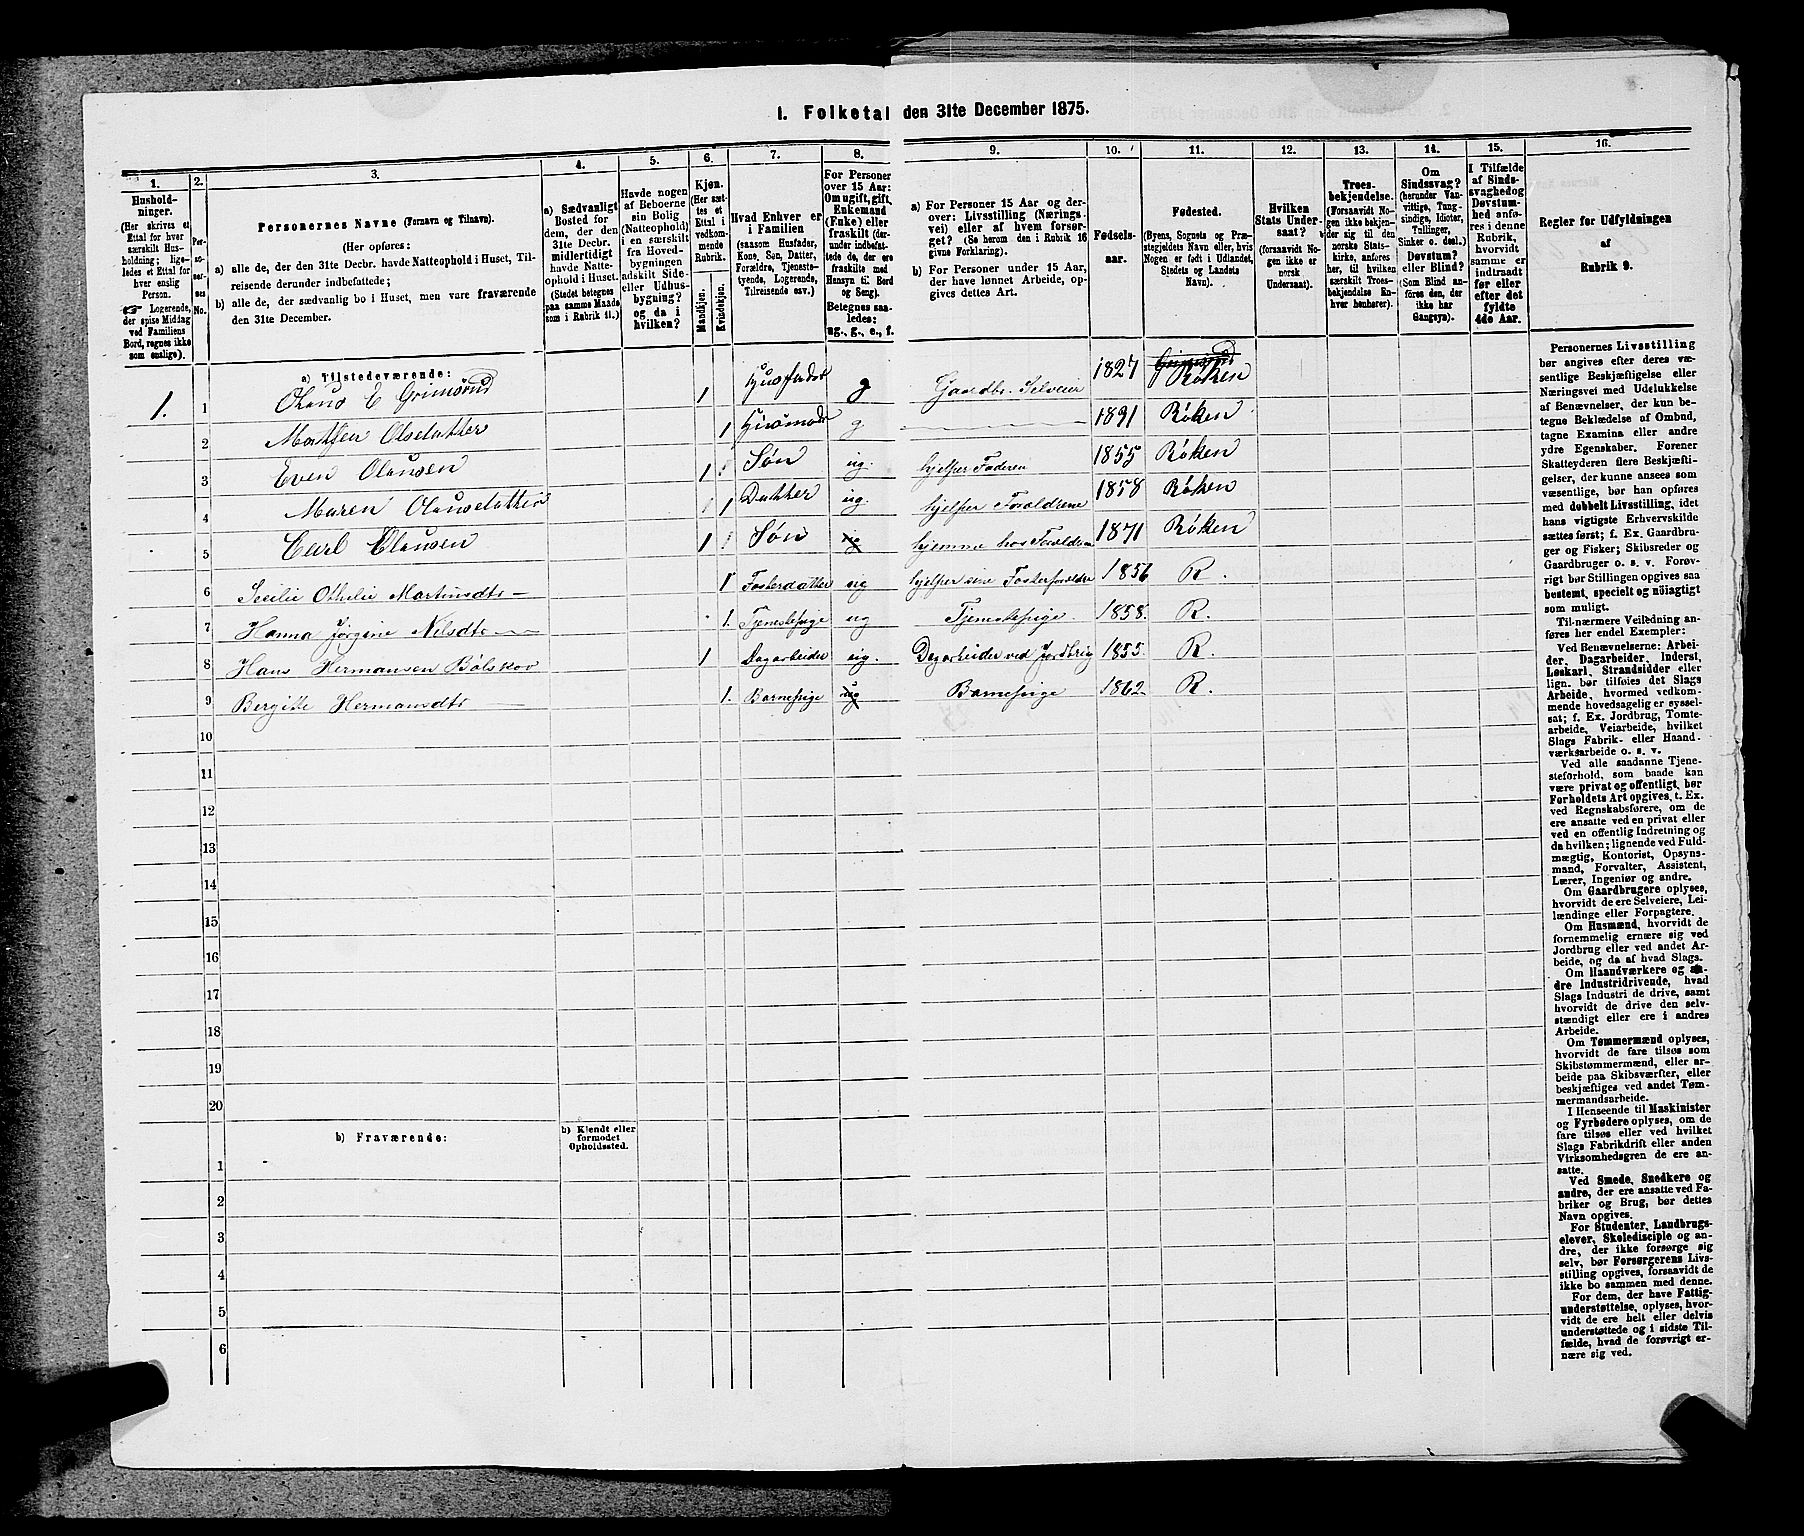 1. Folketal den 31te December 1875.
1.
Hushold-
ninger.
(Her skrives et
Ettal for hver
særskilt Hus-
holdning; lige-
ledes et Ettal for
hver enslig
Person.
☞ Logerende,
der spise Middag
ved Familiens
Bord, regnes ikke
som enslige).
2.
Per-
so-
ner-
nes
No.
3.
Personernes Navne (Fornavn og Tilnavn).
(Her opføres:
a) alle de, der den 31te Decbr. havde Natteophold i Huset, Til-
reisende derunder indbefattede;
b) alle de, der sædvanlig bo i Huset, men vare fraværende
den 31te December.
4.
a) Sædvanligt
Bosted for
dem, der den
31te Decbr.
midlertidigt
havde Natte-
ophold i Huset.
(Stedet betegnes
paa samme Maade
som i Rubrik 11.)
5.
Havde nogen
af Beboerne
sin Bolig
(Natteophold)
i en særskilt
fra Hoved-
bygningen
adskilt Side-
eller Udhus-
bygning?
og da i
hvilken?
6.
Kjøn.
(Her sæt-
tes et
Ettal i
vedkom-
mende
Rubrik.
Mandkjøn.
Kvindekjøn.
7.
Hvad Enhver er
i Familien
(saasom Husfader,
Kone, Søn, Datter,
Forældre, Tjeneste-
tyende, Logerende,
Tilreisende osv.)
8.
For Personer
over 15 Aar:
Om ugift, gift,
Enkemand
(Enke) eller
fraskilt (der-
under indbefat-
tede de, der ere
fraskilte med
Hensyn til Bord
og Seng).
Betegnes saa-
ledes:
ug., g., e., f.
9.
a) For Personer 15 Aar og der-
over: Livsstilling (Nærings-
vei) eller af hvem forsør-
get? (Se herom den i Rubrik 16
givne Forklaring).
b) For Personer under 15 Aar,
der have lønnet Arbeide, op-
gives dettes Art.
10.
Fødsels-
aar.
11.
Fødested.
(Byens, Sognets og Præ-
stegjeldets Navn eller, hvis
Nogen er født i Udlandet,
Stedets og Landets
Navn).
12.
Hvilken
Stats Under-
saat?
(forsaavidt No-
gen ikke er
norsk
Undersaat).
13.
Troes-
bekjendelse.
(Forsaavidt No-
gen ikke bekjen-
der sig til den
norske Stats-
kirke, anføres
her, til hvilken
særskilt Troes-
bekjendelse En-
hver henhører).
14.
Om
Sindssvag?
(herunder Van-
vittige, Tung-
sindige, Idioter,
Tullinger,
Sinker o. desl.)
Døvstum?
eller Blind?
(Som Blind an-
føres den, der
ikke har
Gangsyn).
15.
I Tilfælde
af Sinds-
svaghed og
Døvstum-
hed anfø-
res i denne
Rubrik,
hvorvidt
samme er
indtraadt
før eller
efter det
fyldte
4de Aar.
16.
Regler for Udfyldningen
af
Rubrik 9.
a) Tilstedeværende:
1. 1 Olaus E Grimsrud 1 Husfader g Gaardbr. Selveier 1827 Grimsrud Røken
2 Mathea Olsdatter 1 Husmoder g. 1831 Røken
3 Even Olausen 1 Søn ug. hjelper Faderen 1855 Røken
4 Maren Olausdatter 1 Datter ug. hjelper Foraldrene 1858 Røken
5 Carl Olausen 1 Søn ug hjemme hos Foraldrene 1871 Røken
6 Secilie Othelie Martinsdtr 1 Fosterdatter ug hjelper sine Fosterforaldre 1856 R.
7 Hanna Jørgine Nilsdtr 1. Tjenestepige ug Tjenestepige 1858. R.
8 Hans Hermansen Bølskov 1 Dagarbeider ug. Dagarbeider ved Jordbrug 1855. R.
9 Bergitte Hermansdtr 1. Barnepige ug Barnepige 1862. R.
10
11
12
13
14
15
16
17
18
19
20
b) Fraværende:
b) Kjendt eller
formodet
Opholdssted.
1
2
3
4
5
6
Personernes Livsstilling
bør angives efter deres væ-
sentlige Beskjæftigelse eller
Næringsvei med Udelukkelse
af Benævnelser, der kun be-
tegne Beklædelse af Ombud,
tagne Examina eller andre
ydre Egenskaber. Forener
Skatteyderen flere Beskjæfti-
gelser, der kunne ansees som
væsentlige, bør han opføres
med dobbelt Livsstilling, idet
hans vigtigste Erhvervskilde
sættes først; f. Ex. Gaardbru-
ger og Fisker; Skibsreder og
Gaardbruger o. s. v. Forøv-
rigt bør Stillingen opgives saa
bestemt, specielt og nøiagtigt
som muligt.
Til nærmere Veiledning an-
føres her endel Exempler:
Ved Benævnelserne: Arbei-
der, Dagarbeider, Inderst,
Løskarl, Strandsidder eller
lign. bør tilføies det Slags
Arbeide, hvormed vedkom-
mende hovedsagelig er syssel-
sat; f. Ex. Jordbrug, Tomte-
arbeide, Veiarbeide, hvilket
Slags Fabrik- eller Haand-
værksarbeide o. s. v.
Ved alle saadanne Tjene-
steforhold, som baade kan
være privat og offentligt, bør
Forholdets Art opgives, t. Ex.
ved Regnskabsførere, om de
ere ansatte ved en privat eller
ved en offentlig Indretning og
da hvilken; lignende ved Fuld-
mægtig, Kontorist, Opsyns-
mand, Forvalter, Assistent,
Lærer, Ingeniør og andre.
Om Gaardbrugere oplyses,
hvorvidt de ere Selveiere, Lei-
lændinge eller Forpagtere.
Om Husmænd, hvorvidt de
fornemmelig ernære sig ved
Jordbrug eller ved andet Ar-
beide, og da af hvad Slags.
Om Haandværkere og an-
dre Industridrivende, hvad
Slags Industri de drive, samt
hvorvidt de drive den selv-
stændigt eller ere i andres
Arbeide.
Om Tømmermænd oplyses,
hvorvidt de fare tilsøs som
Skibstømmermænd, eller ar-
beide paa Skibsværfter, eller
beskjæftiges ved andet Tøm-
mermandsarbeide.
I Henseende til Maskinister
og Fyrbødere oplyses, om de
fare tilsøs eller ved hvilket
Slags Fabrikdrift eller anden
Virksomhedsgren de ere an-
satte.
Ved Smede, Snedkere og
andre, der ere ansatte ved Fa-
briker og Brug, bør dettes
Navn opgives.
For Studenter, Landbrugs-
elever, Skoledisciple og an-
dre, der ikke forsørge sig
selv, bør Forsørgerens Livs-
stilling opgives, forsaavidt de
ikke bo sammen med denne.
For dem, der have Fattig-
understøttelse, oplyses, hvor-
vidt de ere helt eller delvis
understøttede og i sidste Til-
fælde, hvad de forøvrigt er-
nære sig ved.